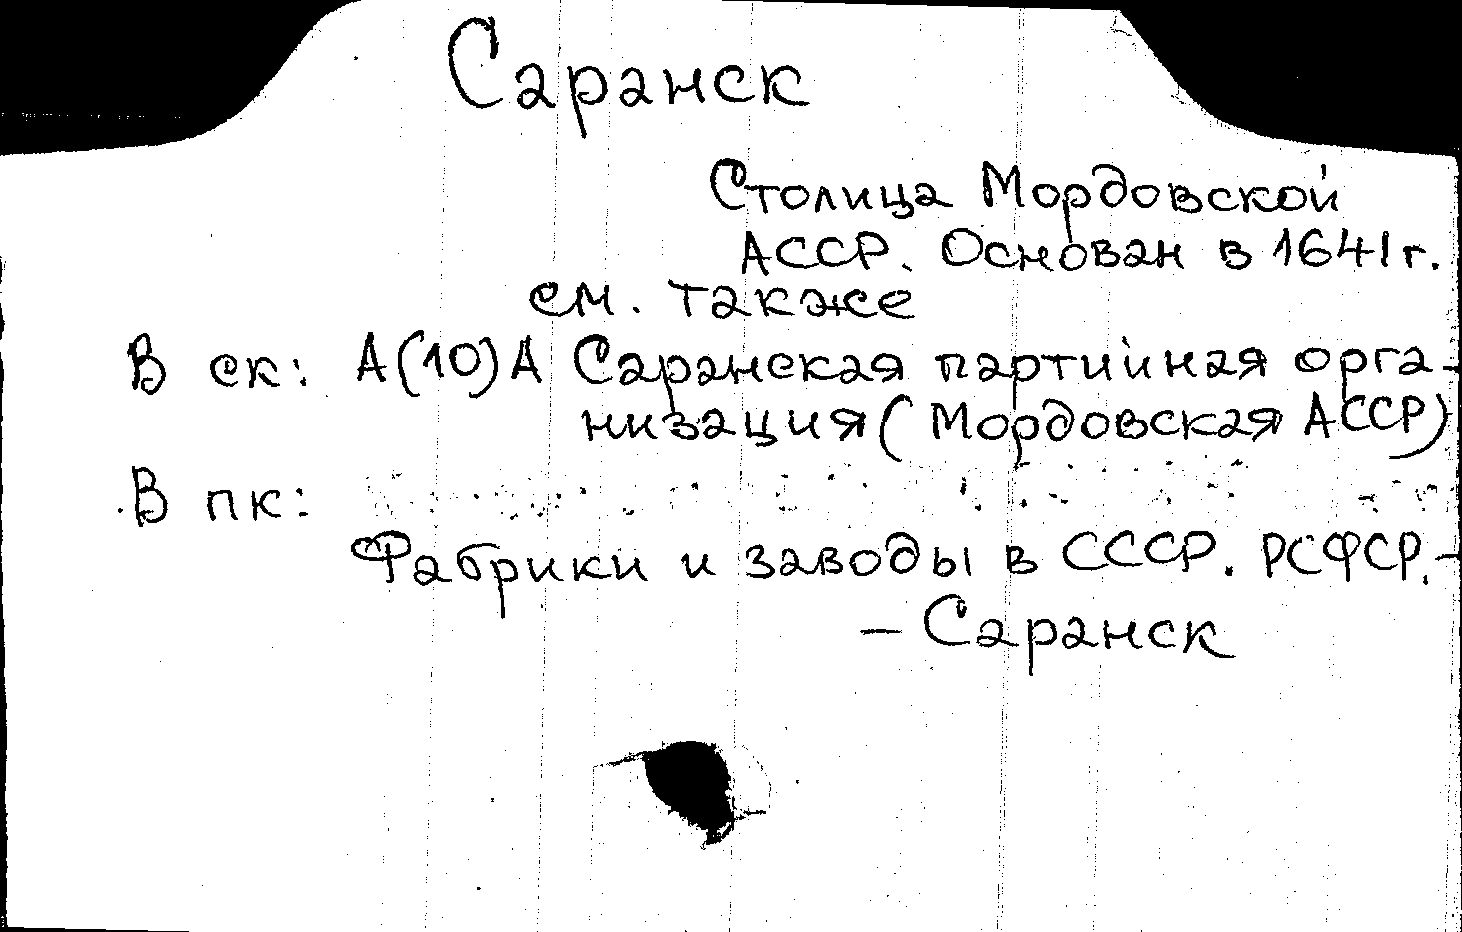 Саранск
Столица Мордовской
АССР. Основан в 1641г.
см. также
В ск: А(10)А Саранская партийная орга-
низация (Мордовская АССР)
В пк:
Фабрики и заводы в СССР. РСФСР.-
- Саранск